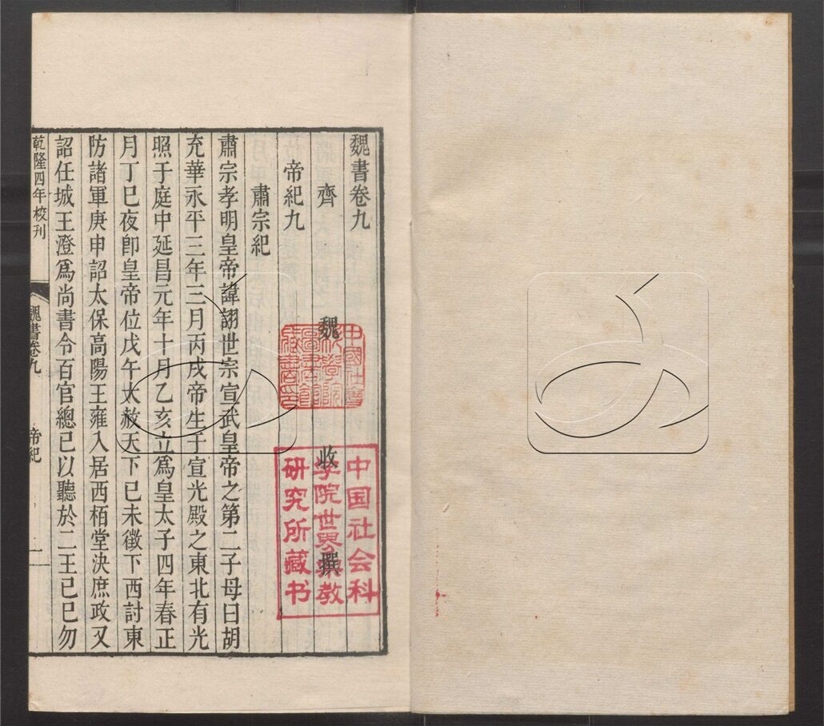 魏書卷九
齊 魏 收 撰
帝紀九
肅宗紀
肅宗孝明皇帝諱詡世宗宣武皇帝之第二子母曰胡
充華永平三年三月丙戌帝生于宣光殿之東北有光
照于庭中延昌元年十月乙亥立爲皇太子四年春正
月丁巳夜卽皇帝位戊午大赦天下己未徵下西討東
防諸軍庚申詔太保高陽王雍入居西栢堂決庶政又
詔任城王澄爲尚書令百官總己以聽於二王己巳勿
乾隆四年校刊
魏書卷九 帝紀 一
中國社會
科學院
圖書館
藏書印
中国社会科
学院世界宗教
研究所藏书